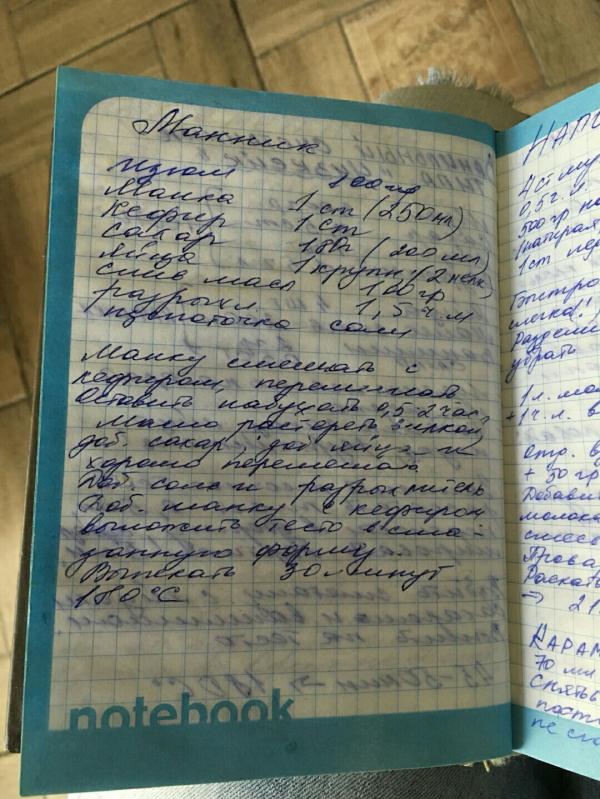 Манник
изюм 100 гр
Манка 1 ст (250 мл)
Кефир 1 ст
сахар 180г (200 мл)
яйца 1 крупн (2 мелк)
слив масл 100 гр
разрыхл. 1,5 ч.л
щепоточка соли
Манку смешать с
кефиром, перемешать
Оставить набухать 0,5-2 часа
Масло растереть
доб. сахар, доб яйца и
хорошо перемешать
Доб. соль и разрыхлитель
Доб. манку с кефиром
выложить тесто в сма-
занную форму.
Выпекать 30 минут
180°С
notebook
НАПО
4 ст му
0,5 г.
500 гр
1 ст
Быстро
слегка!
Раздели
убрать
1 л.
+ 1 ч. л. в
отр. в
+ 50 гр
Добави
молока
смесь
Раскат
→ 2
КАРАМ
70 мл
Снять
посто
не с